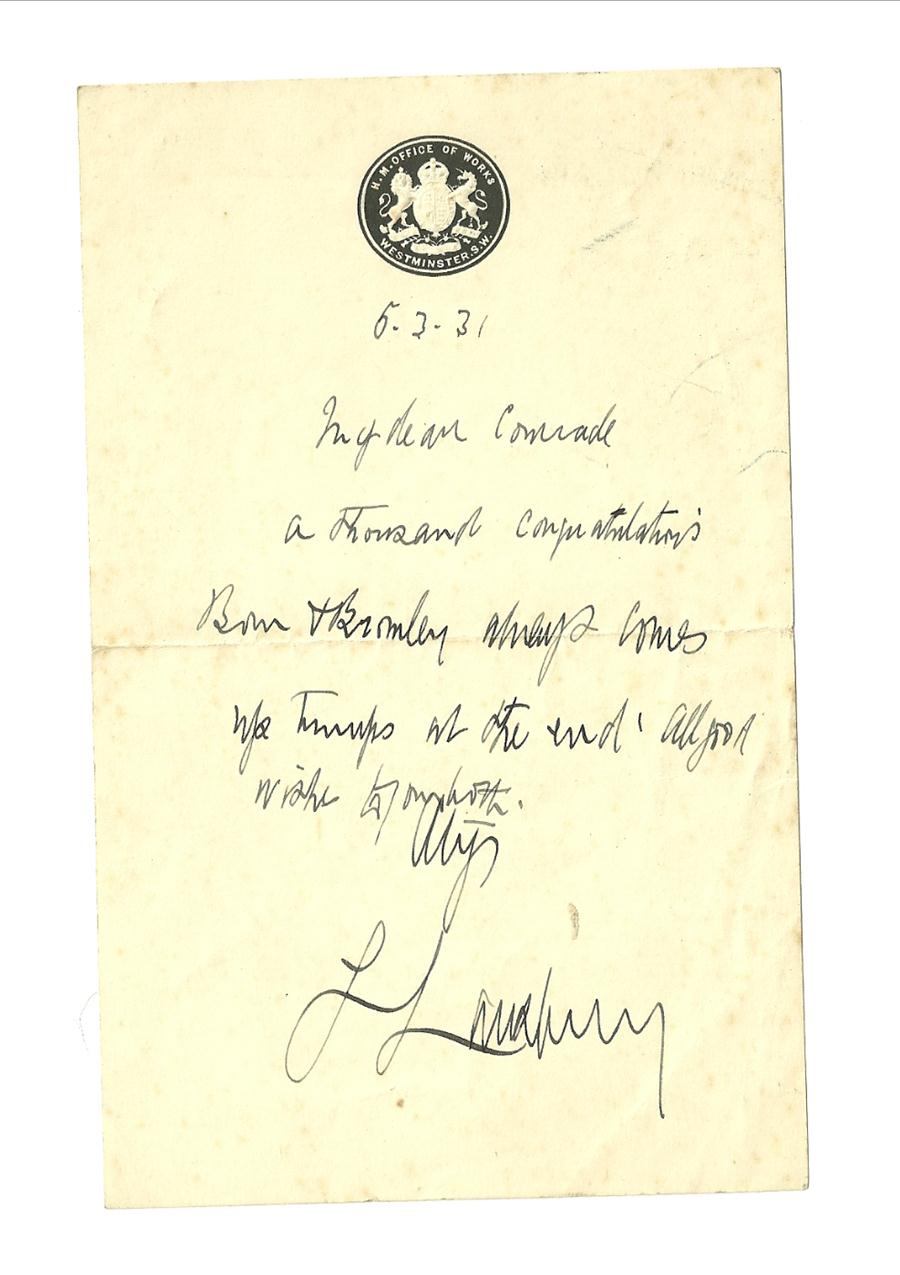 H.M. OFFICE OF WORKS
WESTMINSTER. S.W.
5. 3. 31
My dear Comrade
a thousand congratulations
Bow & Bromley always comes
up Trumps at the end! All good
wishes to you both.
Lansbury